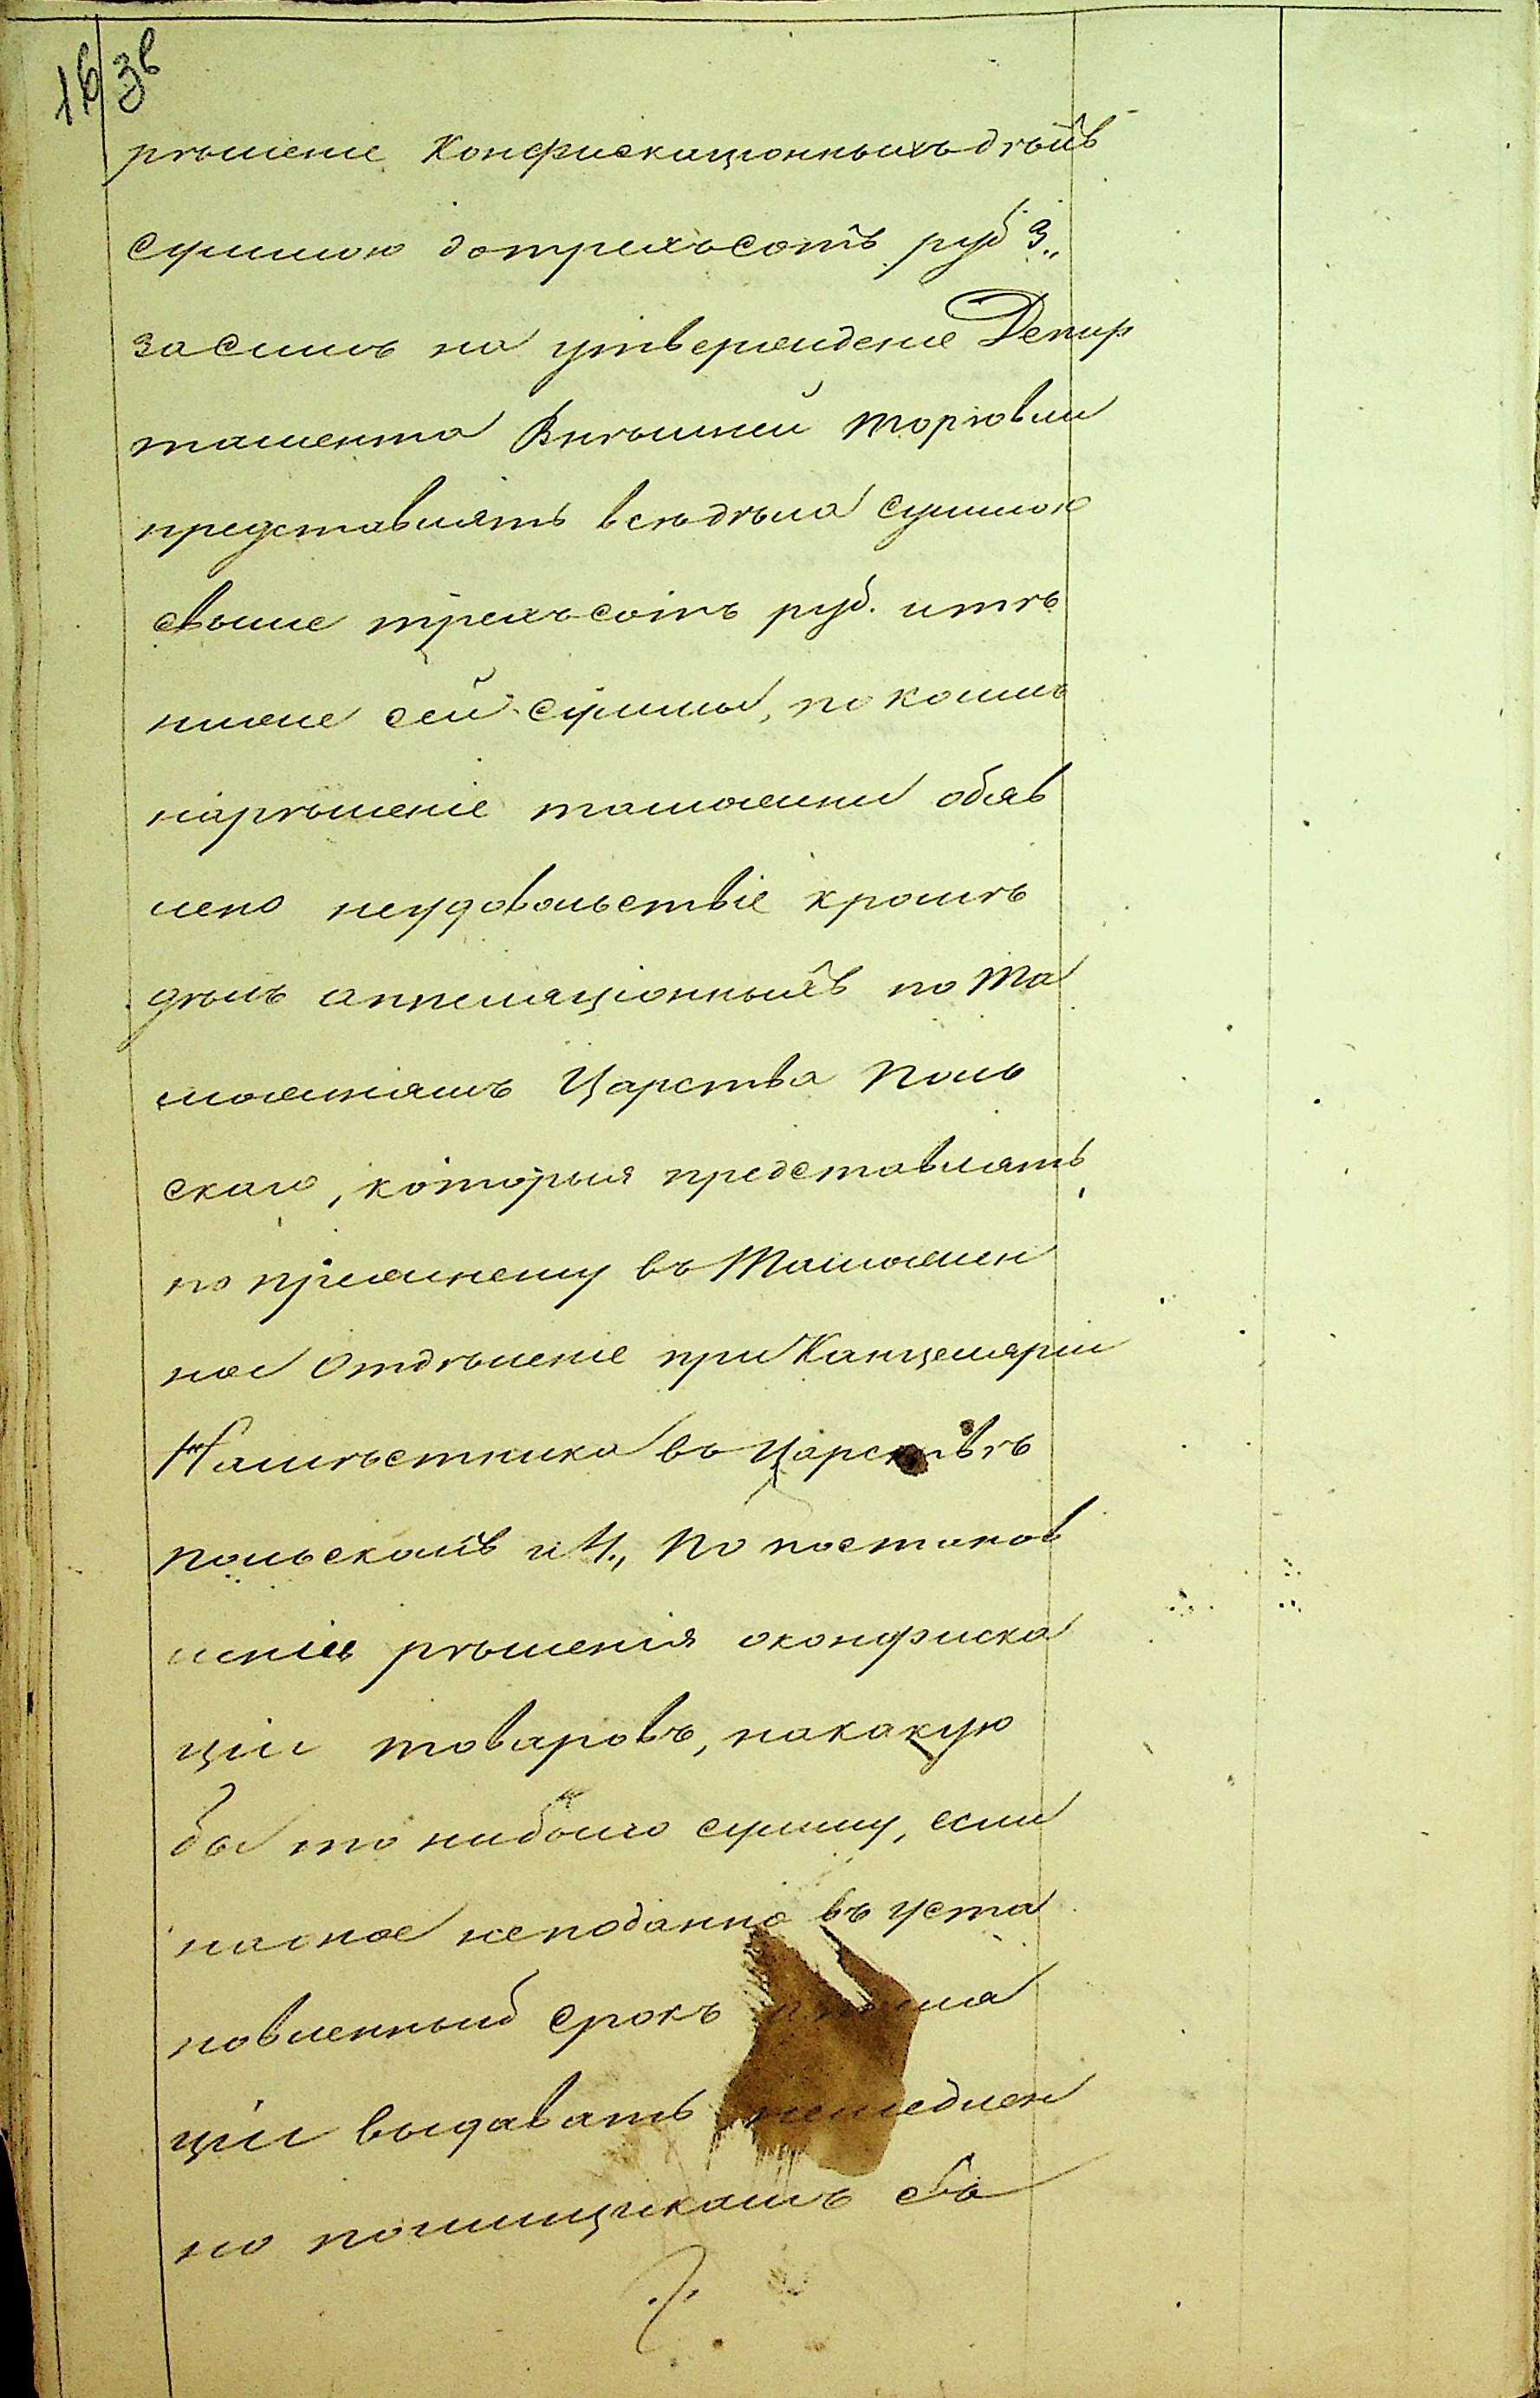 16 36
рѣшеніе Конфискаціонныхъ дѣлъ
суммою до трехъ сотъ руб 3.,
за симъ на утвержденіе Депар
тамента Внѣшней торговли
представлять всѣ дѣла суммою
свыше трехъ сотъ руб. и тѣ
ниже сей суммы, по коимъ
на рѣшеніе таможни обяв
лено неудовольствіе кромѣ
дѣлъ аппеляціонныхъ по Та
можнямъ Царства Поль
скаго, которыя представлять
по прежнему въ Таможен
ное Отдѣленіе при Канцеляріи
Намѣстника въ Царствѣ
Польскомъ и 4., По постанов
леніи рѣшенія о конфиска
ціи товаровъ, на какую
бы то ни было сумму, если
на оное не поданно въ уста
новленный срокъ
ціи выдавать немедлен
но поимщикамъ